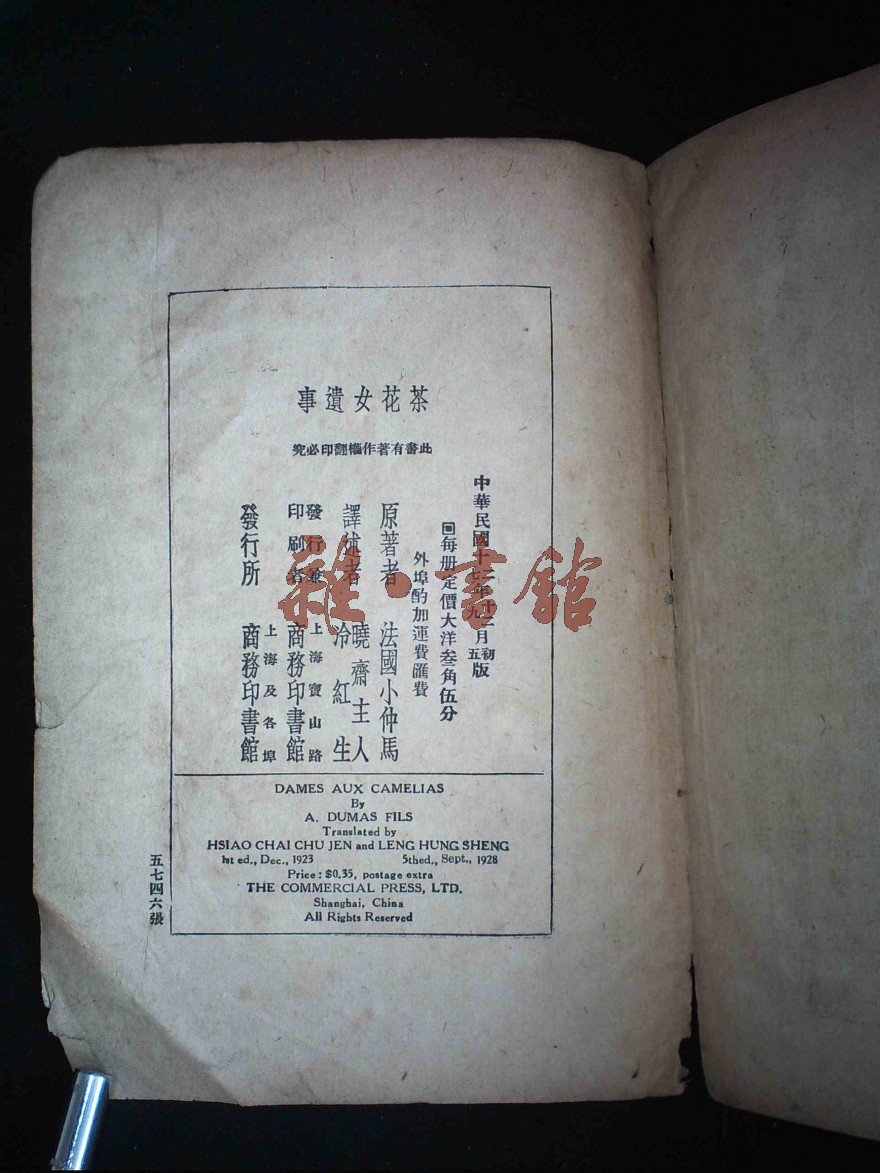 茶花女遺事
此書有著作權翻印必究
中華民國十二七年十二九月初五版
回每册定價大洋叁角伍分
外埠酌加運費匯費
原著者 法國小仲馬
譯述者 曉齋主人
冷紅生
發行兼印刷者 上海寶山路
商務印書館
發行所 上海及各埠
商務印書館
DAMES AUX CAMELIAS
By
A. DUMAS FILS
Translated by
HSIAO CHAI CHU JEN and LENG HUNG SHENG
1st ed., Dec., 1923 5thed., Sept., 1928
Price: $0.35, postage extra
THE COMMERCIAL PRESS, LTD.
Shanghai, China
All Rights Reserved
五七四六張
雜·書館